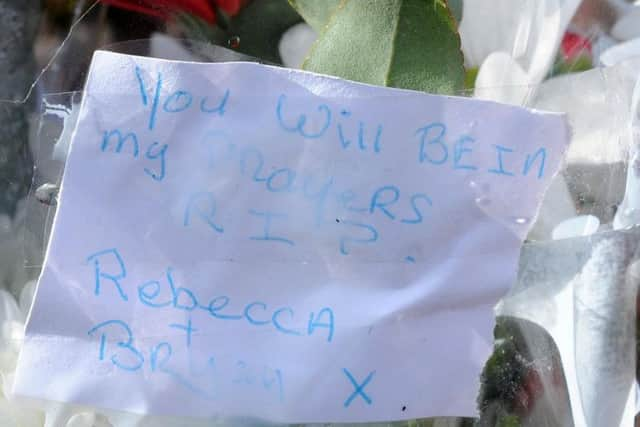 You Will BE In
my PRayeRS
R I P.
Rebecca
+
BRyan X